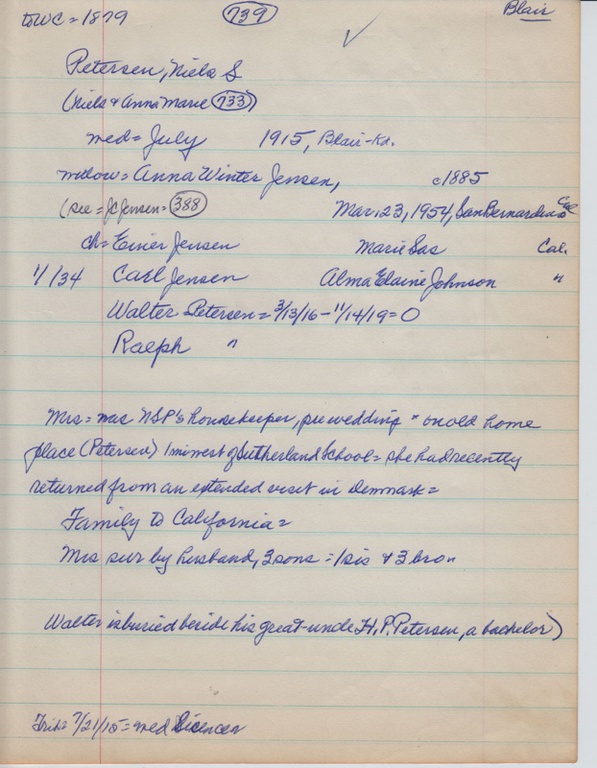 to WC = 1879 739 Blair
Petersen, Niels S
(Niels & Anna Marie 733)
med = July 1915, Blair - Kd.
widow = Anna Winter Jensen, c1885
(see = JC Jensen = 388) Mar. 23, 1954, San Bernardino Cal
ch = Einer Jensen Marie Sas Cal.
1/34 Carl Jensen Alma Elaine Johnson "
Walter Petersen = 3/13/16 - 11/14/19 = 0
Ralph "
Mrs = was NSP's housekeeper, pre wedding " on old home
place (Petersen) 1 mi west of Sutherland School = she had recently
returned from an extended visit in Denmark =
Family to California =
Mrs sur by husband, 3 sons = 1 sis & 3 bro "
Walter is buried beside his great-uncle H. P. Petersen, a bachelor)
Trib = 7/21/15 = med License